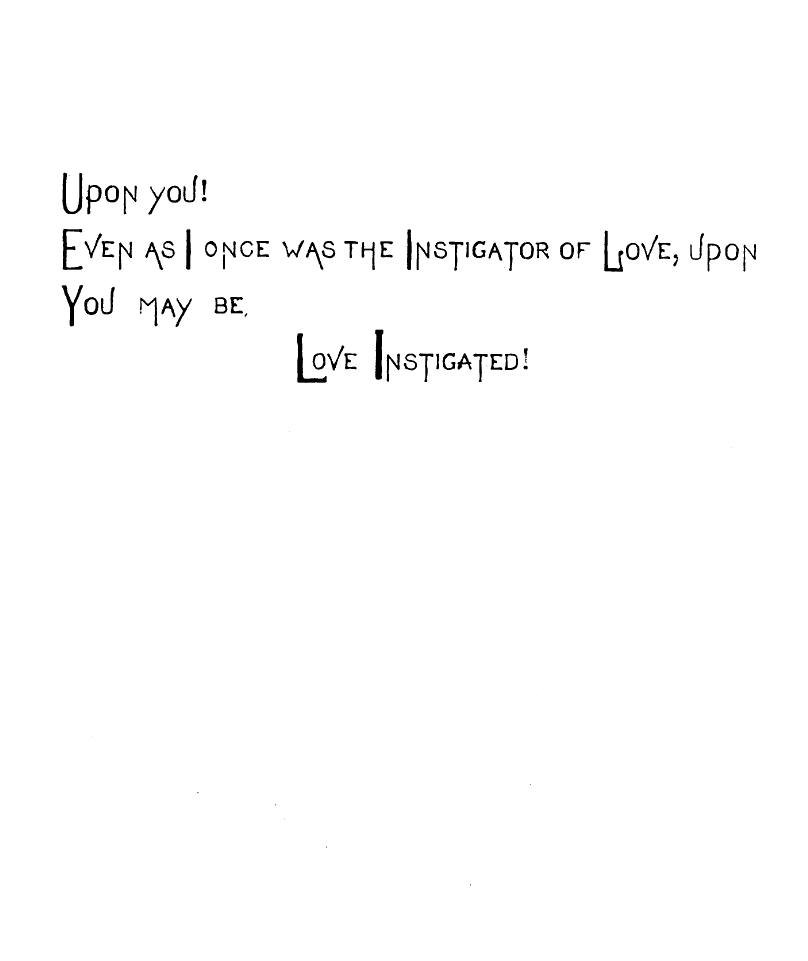 Upon you!
Even as I once was the Instigator of Love, upon
You may be,
Love Instigated!